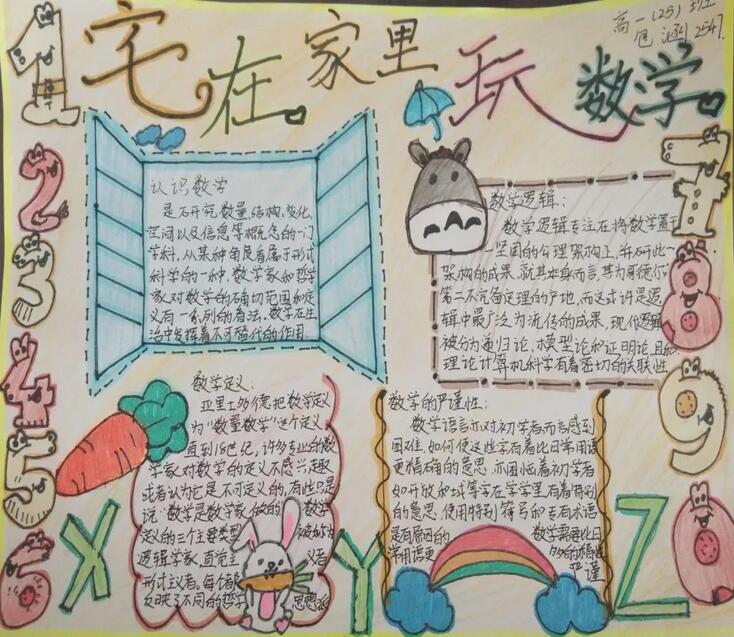 高一(25)班
包涵 2547
宅在家里玩数学
1
2
3
4
5
6
7
8
9
0
认识数学
是研究数量、结构、变化、
空间以及信息等概念的一门
学科,从某种角度看属于形式
科学的一种,数学家和哲学
家对数学的确切范围和定
义有一系列的看法,数学在生
治中发挥着不可替代的作用
数学逻辑:
数学逻辑专注在将数学置于
坚固的公理架构上,并研此一
架构的成果,就其本身而言,其为哥德尔
第二不完备定理的产地,而这或许是逻
辑中最广泛为流传的成果,现代逻辑
被分为递归论、模型论和证明论,且和
理论计算机科学有着密切的关联性
数学定义:
亚里士多德把数学定义
为“数量数学”这个定义
直到18世纪,许多专业的数
学家对数学的定义不感兴趣
或者认为它是不可定义的,有些只是
说“数学是数学家做的 数学
定义的三个主要类型 被称为
逻辑学家,直觉主 义者
形式主义者,每个都
反映了不同的哲学 思想派
数学的严谨性:
数学语言亦对初学者而言感到
困难,如何使这些字有着比日常用语
更精确的意思,亦困恼着初学者
如开放和域等字在学学里有着特别
的意思,使用特别符号和专有术语
是有原因的 数学需要比日
常用语更 多的精确
严谨
X
Y
Z